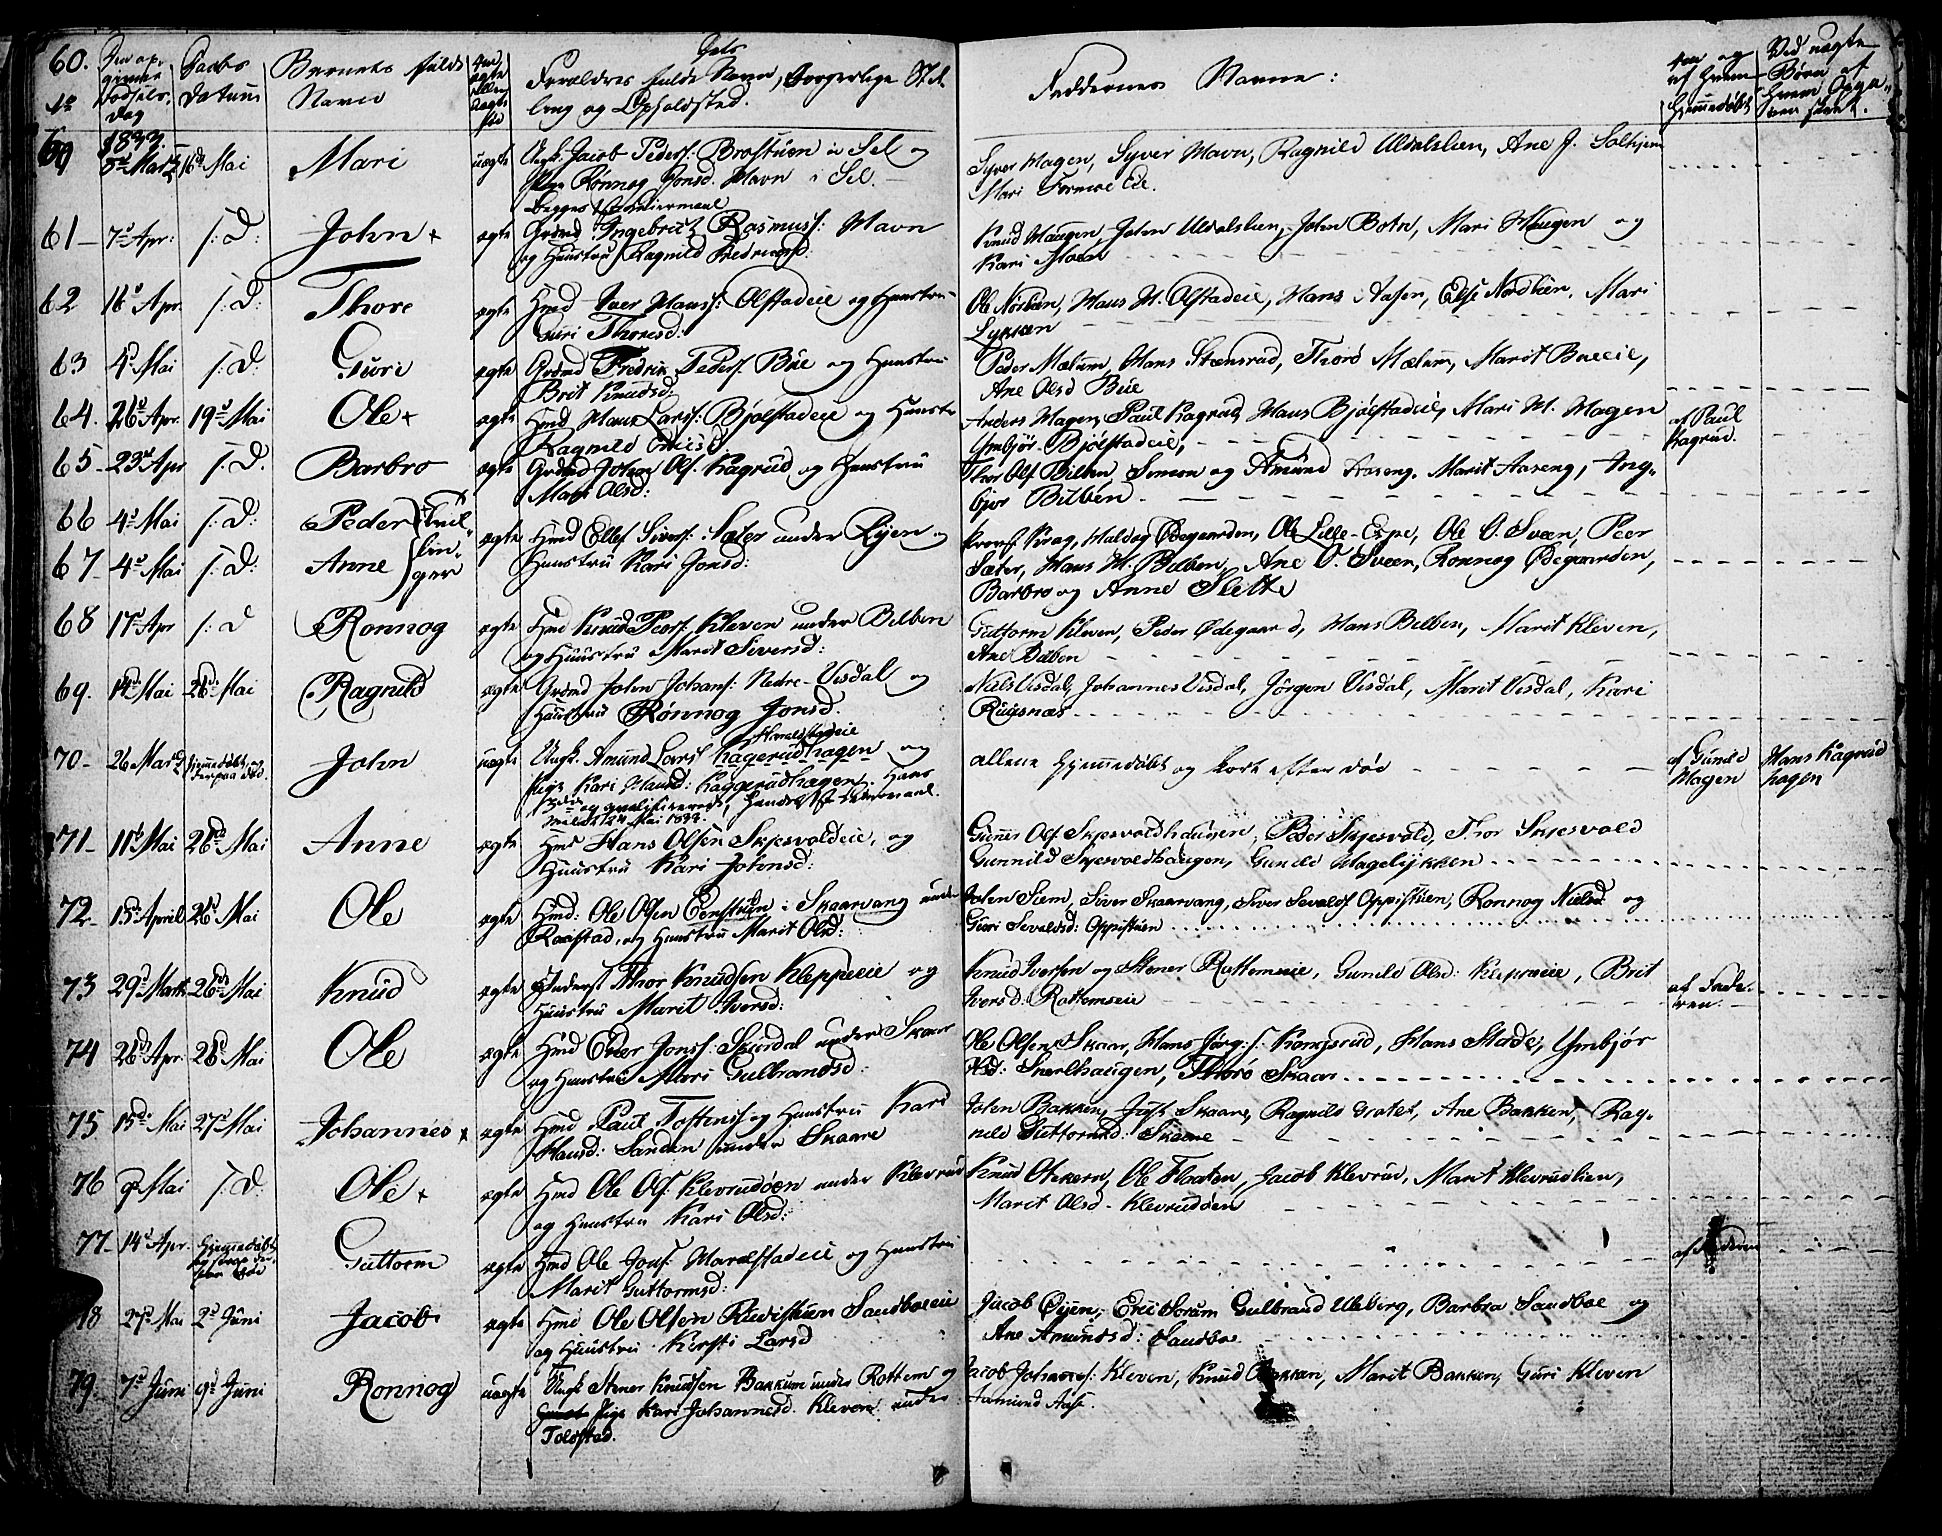 60.
No
Den op-
givne
Fødsels-
dag
Daabs
Datum
Barnets fulde
Navn
Om
ægte
eller
uægte
fød
Forældres fulde Navn, borgerlige Stil-
ling og Opholdsted.
Faddernes Navne:
Om og
af hvem
hjemmedøbt
Ved uægte
Børn af
hvem Opga-
ven skeet.
1833.
60 5te Marts 16de Mai Mari uægte Ungk. Jacob Peders: Brostuen i Sel og
Pige Rønnog Jonsd. Mavn i Sel.
Begges 1ste Leiermaal
Syver Hagen, Syver Mavn, Ragnild Uldalslien, Ane J. Solhjem
Mari Formoe Eie.
61 7de Apr: s: D: John + ægte Grdmd Ingebrict Rasmuss: Mavn
og Hustru Ragnild Fredricsd:
Knud Haugen, John Uldalslien, John Botn, Mari Haugen og
Kari Moen
62 16de Apr s: D: Thore ægte Hmd Iver Hanss: Olstadeie og Huustru
Guri Thoresd:
Ole Nordlien, Hans H. Olstadeie, Hans Aasen, Else Nordlien, Mari
Lykken
63 4de Mai s: D: Guri ægte Grdmd Fredrik Peders. Bue og Huustru
Brit Knudsd:
Peder Mælum, Hans Steensrud, Thorø Mælum, Marit Bueeie,
Ane Olsd Bue
64. 26de Apr. 19de Mai Ole + ægte Hmd Hans Larss: Bjølstadeie og Huustru
Ragnild
Anders Hagen, Paul Kagrud, Hans Bjølstadeie, Mari H. Hagen
Ymbjør Bjølstadeie,
af Paul
Kagrud.
65 23de Apr s: D. Barbro ægte Grdmd Johan Ols. Kagrud og Huustru
Marit Olsd:
Thor Ols Bilben, Simen og Amund Aaseng, Marit Aaseng, Ing-
bjør Bilben.
66 4de Mai s: D: Peder } Tvil-
67 4de Mai s: D: Anne } lin-
ger
ægte Hmd Ellef Sivers: Sæter under Ryen og
Huustru Kari Jonsd:
Provst Krag, Haldog Ødegaarden, Ole Lille-Espe, Ole O. Sveen, Peer
Sæter, Hans H. Bilben, Ane O. Sveen, Rønnog Ødegaarden,
Barbro og Anne Slette
68 17de Apr s: D Ronnog ægte Hmd Knud Peers: Kleven under Bilben
og Huustru Marit Siversd:
Guttorm Kleven, Peder Ødegaard, Hans Bilben, Marit Kleven,
Ane Bilben
69. 14de Mai 26de Mai Ragnild ægte Grdmd John Johans: Nedre-Visdal og
Huustru Rønnog Jonsd.
Niels Visdal, Johannes Visdal, Jørgen Visdal, Marit Visdal, Kari
Ruusnæs
70 26 Marts Hjemmedøbt
derpaa død. John uægte Ungk. Amund Larss Kagerudhagen og
Haralstadeie
Pige Kari Hansd: Kaggerudhagen. Hans
og qvalificerede, Hendes 1ste Leiermaal.
meldt 24 Mai 1833.
allene hjemmedøbt og kort efter død
af Gunild
Hagen
Hans Kagrud
hagen
71 11te Mai 26de Mai Anne ægte Hmd Hans Olsen Skjesvoldeie, og
Huustru Kari Johnsd:
Gunner Ols Skjesvoldhaugen, Peder Skjesvold, Thor Skjesvold
Gunnild Skjesvoldhaugen, Gunild Hagelykken
72 15de April 26de Mai Ole ægte Hmd: Ole Olsen Eenstuen i Skaarvang under
Raastad, og Huustru Marit Olsd:
John Siem, Siver Skaarvang, Iver Sevalds Oppistuen, Ronnog Nielsd og
Guri Sevaldsd: Oppistuen
73 29de Marts 26de Mai Knud ægte Inderst Thor Knudsen Kleppeeie og
Huustru Marit Iversd:
Knud Iversen og Stener Rottemseie, Gunild Olsd: Kleppeeie, Brit
Iversd: Rottemseie
af Fade-
ren.
74 26de Apr. 26de Mai Ole ægte Hmd Peder Jonss: Skurdal under Skaar
og Huustru Mari Gulbrandsd:
Ole Olsen Skaar, Hans Jørg:s. Kongsrud, Hans Stade, Ymbjør
Olsd: Snerlhaugen, Thorø Skaar
75 15de Mai 27de Mai Johannes + ægte Hmd Paul Toftens og Huustru Kari
Hansd: Sanden under Skaare
John Bakken, Just Skaare, Ragnild Grotet, Ane Bakken, Rag-
nild Guttormsd: Skaare
76 9de Mai s: D: Ole + ægte Hmd Ole Ols. Klevrudøen under Klevrud
og Huustru Kari Olsd:
Knud Otekern, Ole Flaaten, Jacob Klevrud, Marit Klevrudlien,
Marit Olsd. Klevrudøen
77 14de Apr. Hjemmedøbt
og strax der-
efter død Guttorm ægte Hmd Ole Jons. Haralstadeie og Huustru
Marit Guttormsd:
af Faderen
78 27de Mai 2de Juni Jacob ægte Hmd Ole Olsen Sandboeeie
og Huustru Kersti Larsd
Jacob Øyen, Eric Sorum Gulbrand Uleberg, Barbra Sandboe og
Ane Amundsd: Sandboe
79. 7de Juni 9de Juni Ronnog uægte Ungk Stener Knudsen Bakkum under Rottem og
Pige Kari Johannesd. Kleven under
Toldstad.
Jacob Johanness: Kleven, Knud Bakken, Marit Bakken, Guri Kleven
Aamund Aase.